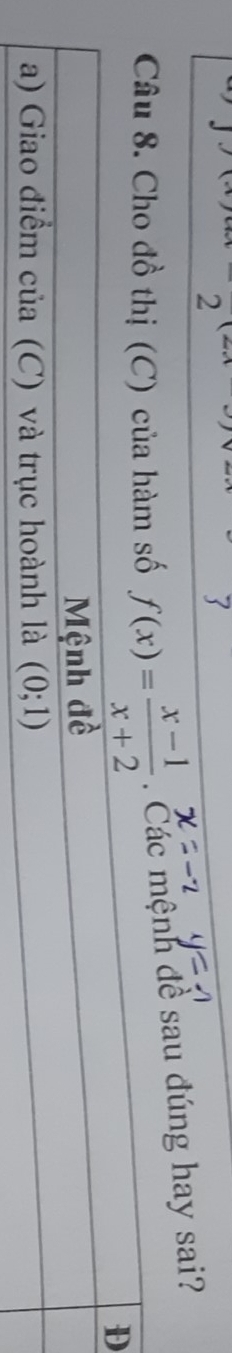 Câu 8. Cho đồ thị (C) của hàm số f(x) = \frac{x-1}{x+2}. Các mệnh đề sau đúng hay sai?
x = -2 y = 1
Mệnh đề Đ
a) Giao điểm của (C) và trục hoành là (0;1)